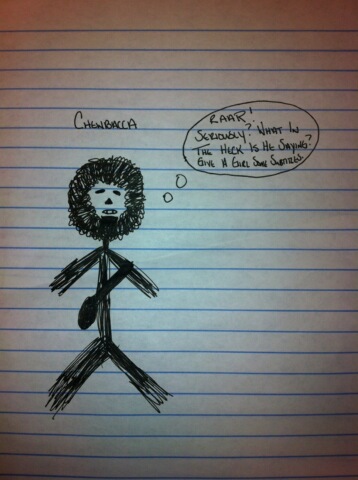 CHEWBACCA
RAAR!
SERIOUSLY? WHAT IN
THE HECK IS HE SAYING?
GIVE A GIRL SOME SUBTITLES